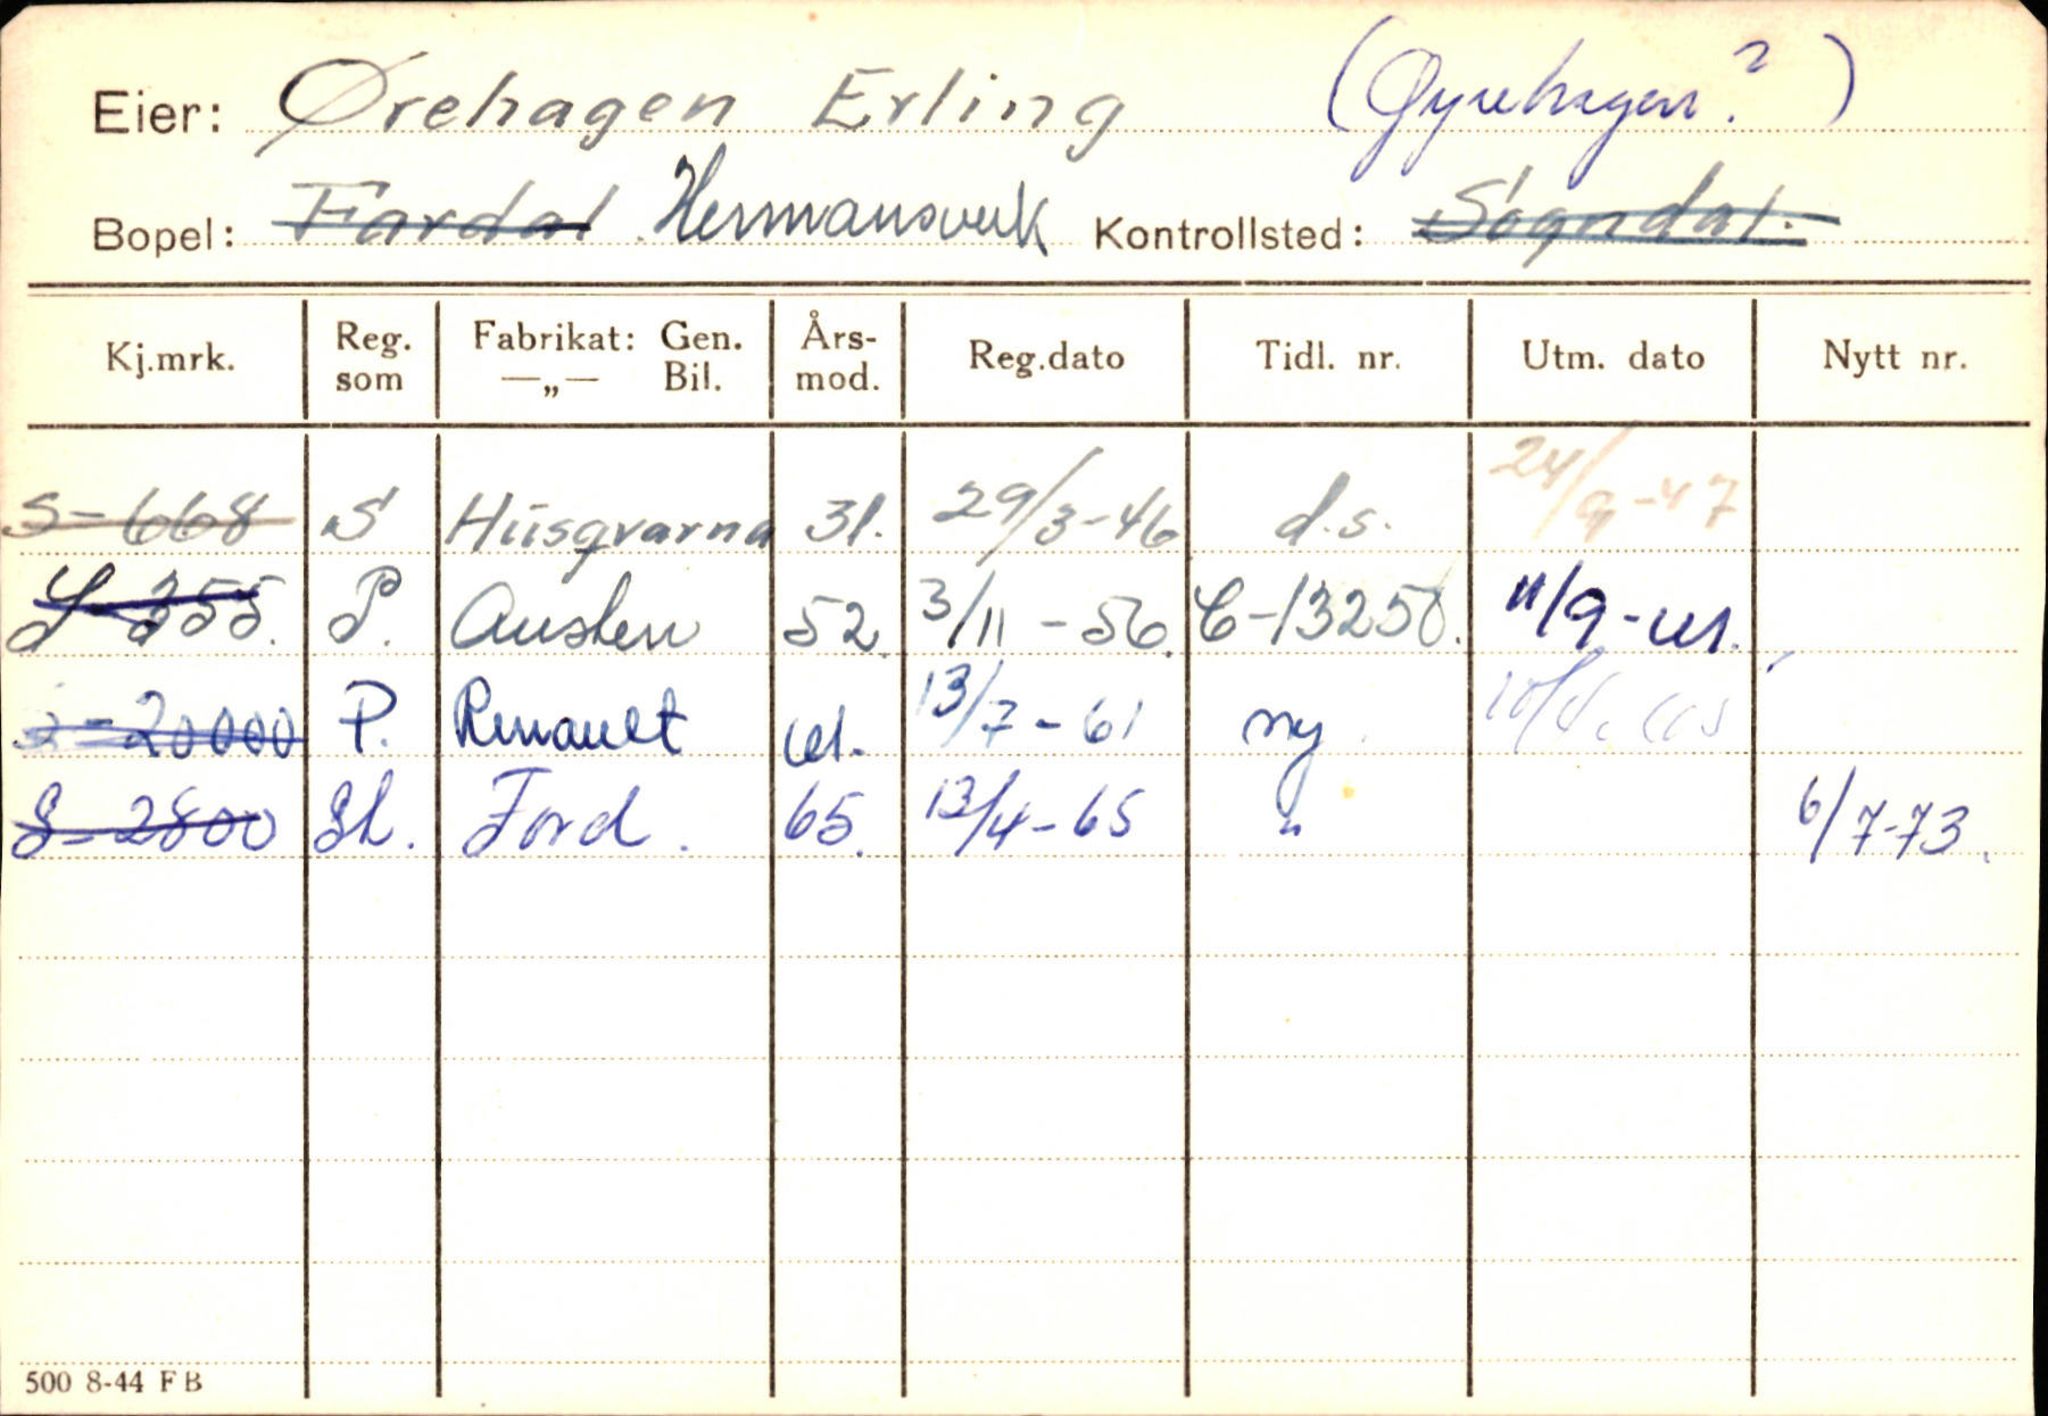 Eier: Ørehagen Erling (Øyrehagen?)
Bopel: Fardal Hermansverk Kontrollsted: Sogndal.
Kj.mrk. Reg. som Fabrikat: Gen. —„— Bil. Års- mod. Reg.dato Tidl. nr. Utm. dato Nytt nr.
S-668 S Husqvarna 31. 29/3-46 d.s. 24/9-47
S-355. P. Austen 52. 3/11-56. C-13250. 11/9-61.
S-20000 P. Renault 61. 13/7-61 ny
S-2800 St. Ford. 65. 13/4-65 " 6/7-73.
500 8-44 FB